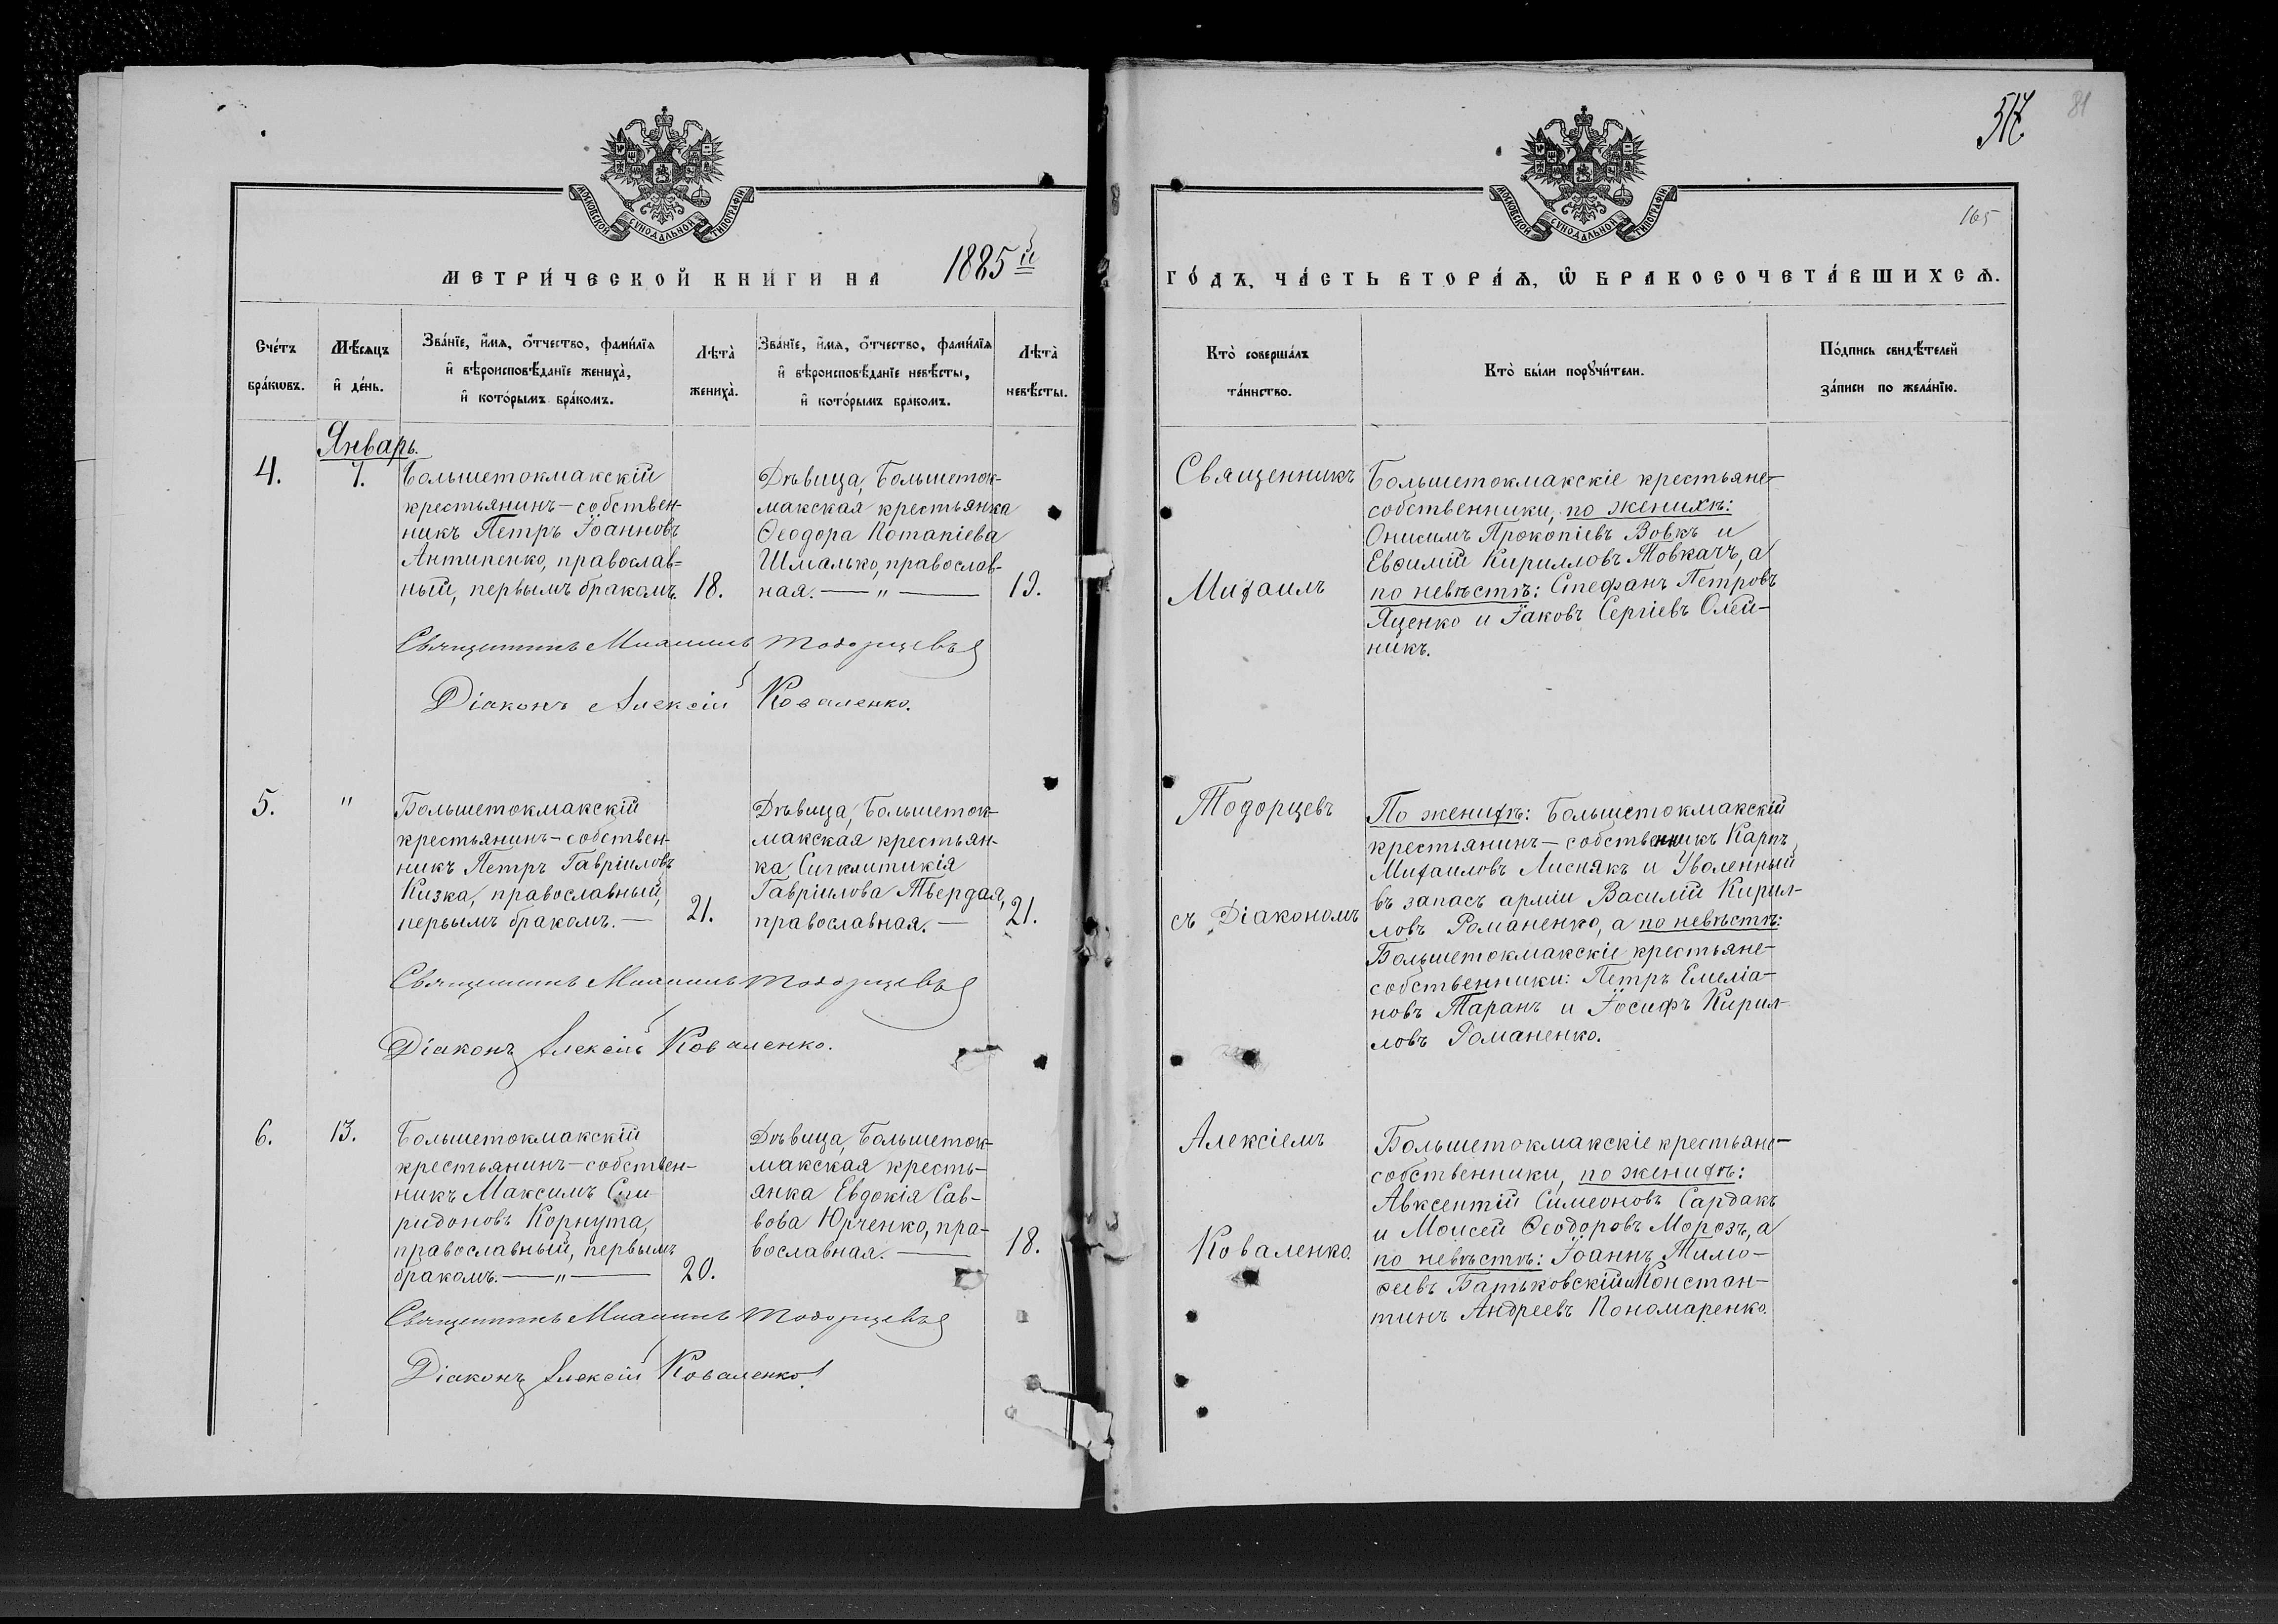 517
81
165
МОСКОВСКОЙ СѴНОДАЛЬНОЙ ТИПОГРАФІИ
МЕТРИ́ЧЕСКОЙ КНИ́ГИ НА 1885й
Сче́тъ бра́кωвъ.
Мѣ́сяцъ и҆ де́нь.
Зва́нїе, и҆́мя, ѻ҆́тчество, фами́лїя
и҆ вѣроисповѣ́данїе жениха̀,
и҆ кото́рымъ бра́комъ.
Лѣта̀ жениха̀.
Зва́нїе, и҆́мя, ѻ҆́тчество, фами́лїя
и҆ вѣроисповѣ́данїе невѣ́сты,
и҆ кото́рымъ бракомъ.
Лѣта̀ невѣ́сты.
Январь.
4.
7.
Большетокмакскій
крестьянинъ-собствен-
никъ Петръ Іоанновъ
Антипенко, православ=
ный, первымъ бракомъ.
18.
Дѣвица, Большеток-
макская крестьянка
Ѳеодора Потапіева
Шмалько, православ-
ная. — " —
19.
Священникъ Михаилъ Тодорцевъ
Діаконъ Алексій Коваленко.
5.
"
Большетокмакскій
крестьянинъ-собствен-
никъ Петръ Гавріиловъ
Кизка, православный,
первымъ бракомъ. —
21.
Дѣвица, Большеток-
макская крестьян-
ка Сигклитикія
Гавріилова Твердая,
православная. —
21.
Священникъ Михаилъ Тодорцевъ
Діаконъ Алексій Коваленко.
6.
13.
Большетокмакскій
крестьянинъ-собствен-
никъ Максимъ Спи-
ридоновъ Корнута,
православный, первымъ
бракомъ. — " —
20.
Дѣвица, Большеток-
макская кресть-
янка Евдокія Сав-
вова Юрченко, пра-
вославная. —
18.
Священникъ Михаилъ Тодорцевъ
Діаконъ Алексій Коваленко.
МОСКОВСКОЙ СѴНОДАЛЬНОЙ ТИПОГРАФІИ
ГО́ДЪ, ЧА́СТЬ ВТОРА́Ѧ, Ѽ БРАКОСОЧЕТА́ВШИХСѦ.
Кто̀ соверша́лъ
та́инство.
Кто̀ бы́ли порꙋчи́тели.
По́дпись свидѣ́телей
за́писи по жела́нїю.
Священникъ
Михаилъ
Тодорцевъ
съ Діакономъ
Алексіемъ
Коваленко.
Большетокмакскіе крестьяне-
собственники, по женихѣ:
Онисимъ Прокопіевъ Вовкъ и
Евѳимій Кирилловъ Товкачъ, а
по невѣстѣ: Стефанъ Петровъ
Яценко и Іаковъ Сергіевъ Олей-
никъ.
По женихѣ: Большетокмакскій
крестьянинъ-собственникъ Карпъ
Михаиловъ Лиснякъ и Уволенный
въ запасъ арміи Василій Кирил-
ловъ Романенко, а по невѣстѣ:
Большетокмакскіе крестьяне-
собственники: Петръ Емеліа-
новъ Таранъ и Іосифъ Кирил-
ловъ Романенко.
Большетокмакскіе крестьяне-
собственники, по женихѣ:
Авксентій Симеоновъ Сардакъ
и Моисей Ѳеодоровъ Морозъ, а
по невѣстѣ: Іоаннъ Тимо-
ѳеевъ Батьковскій и Констан-
тинъ Андреевъ Пономаренко.